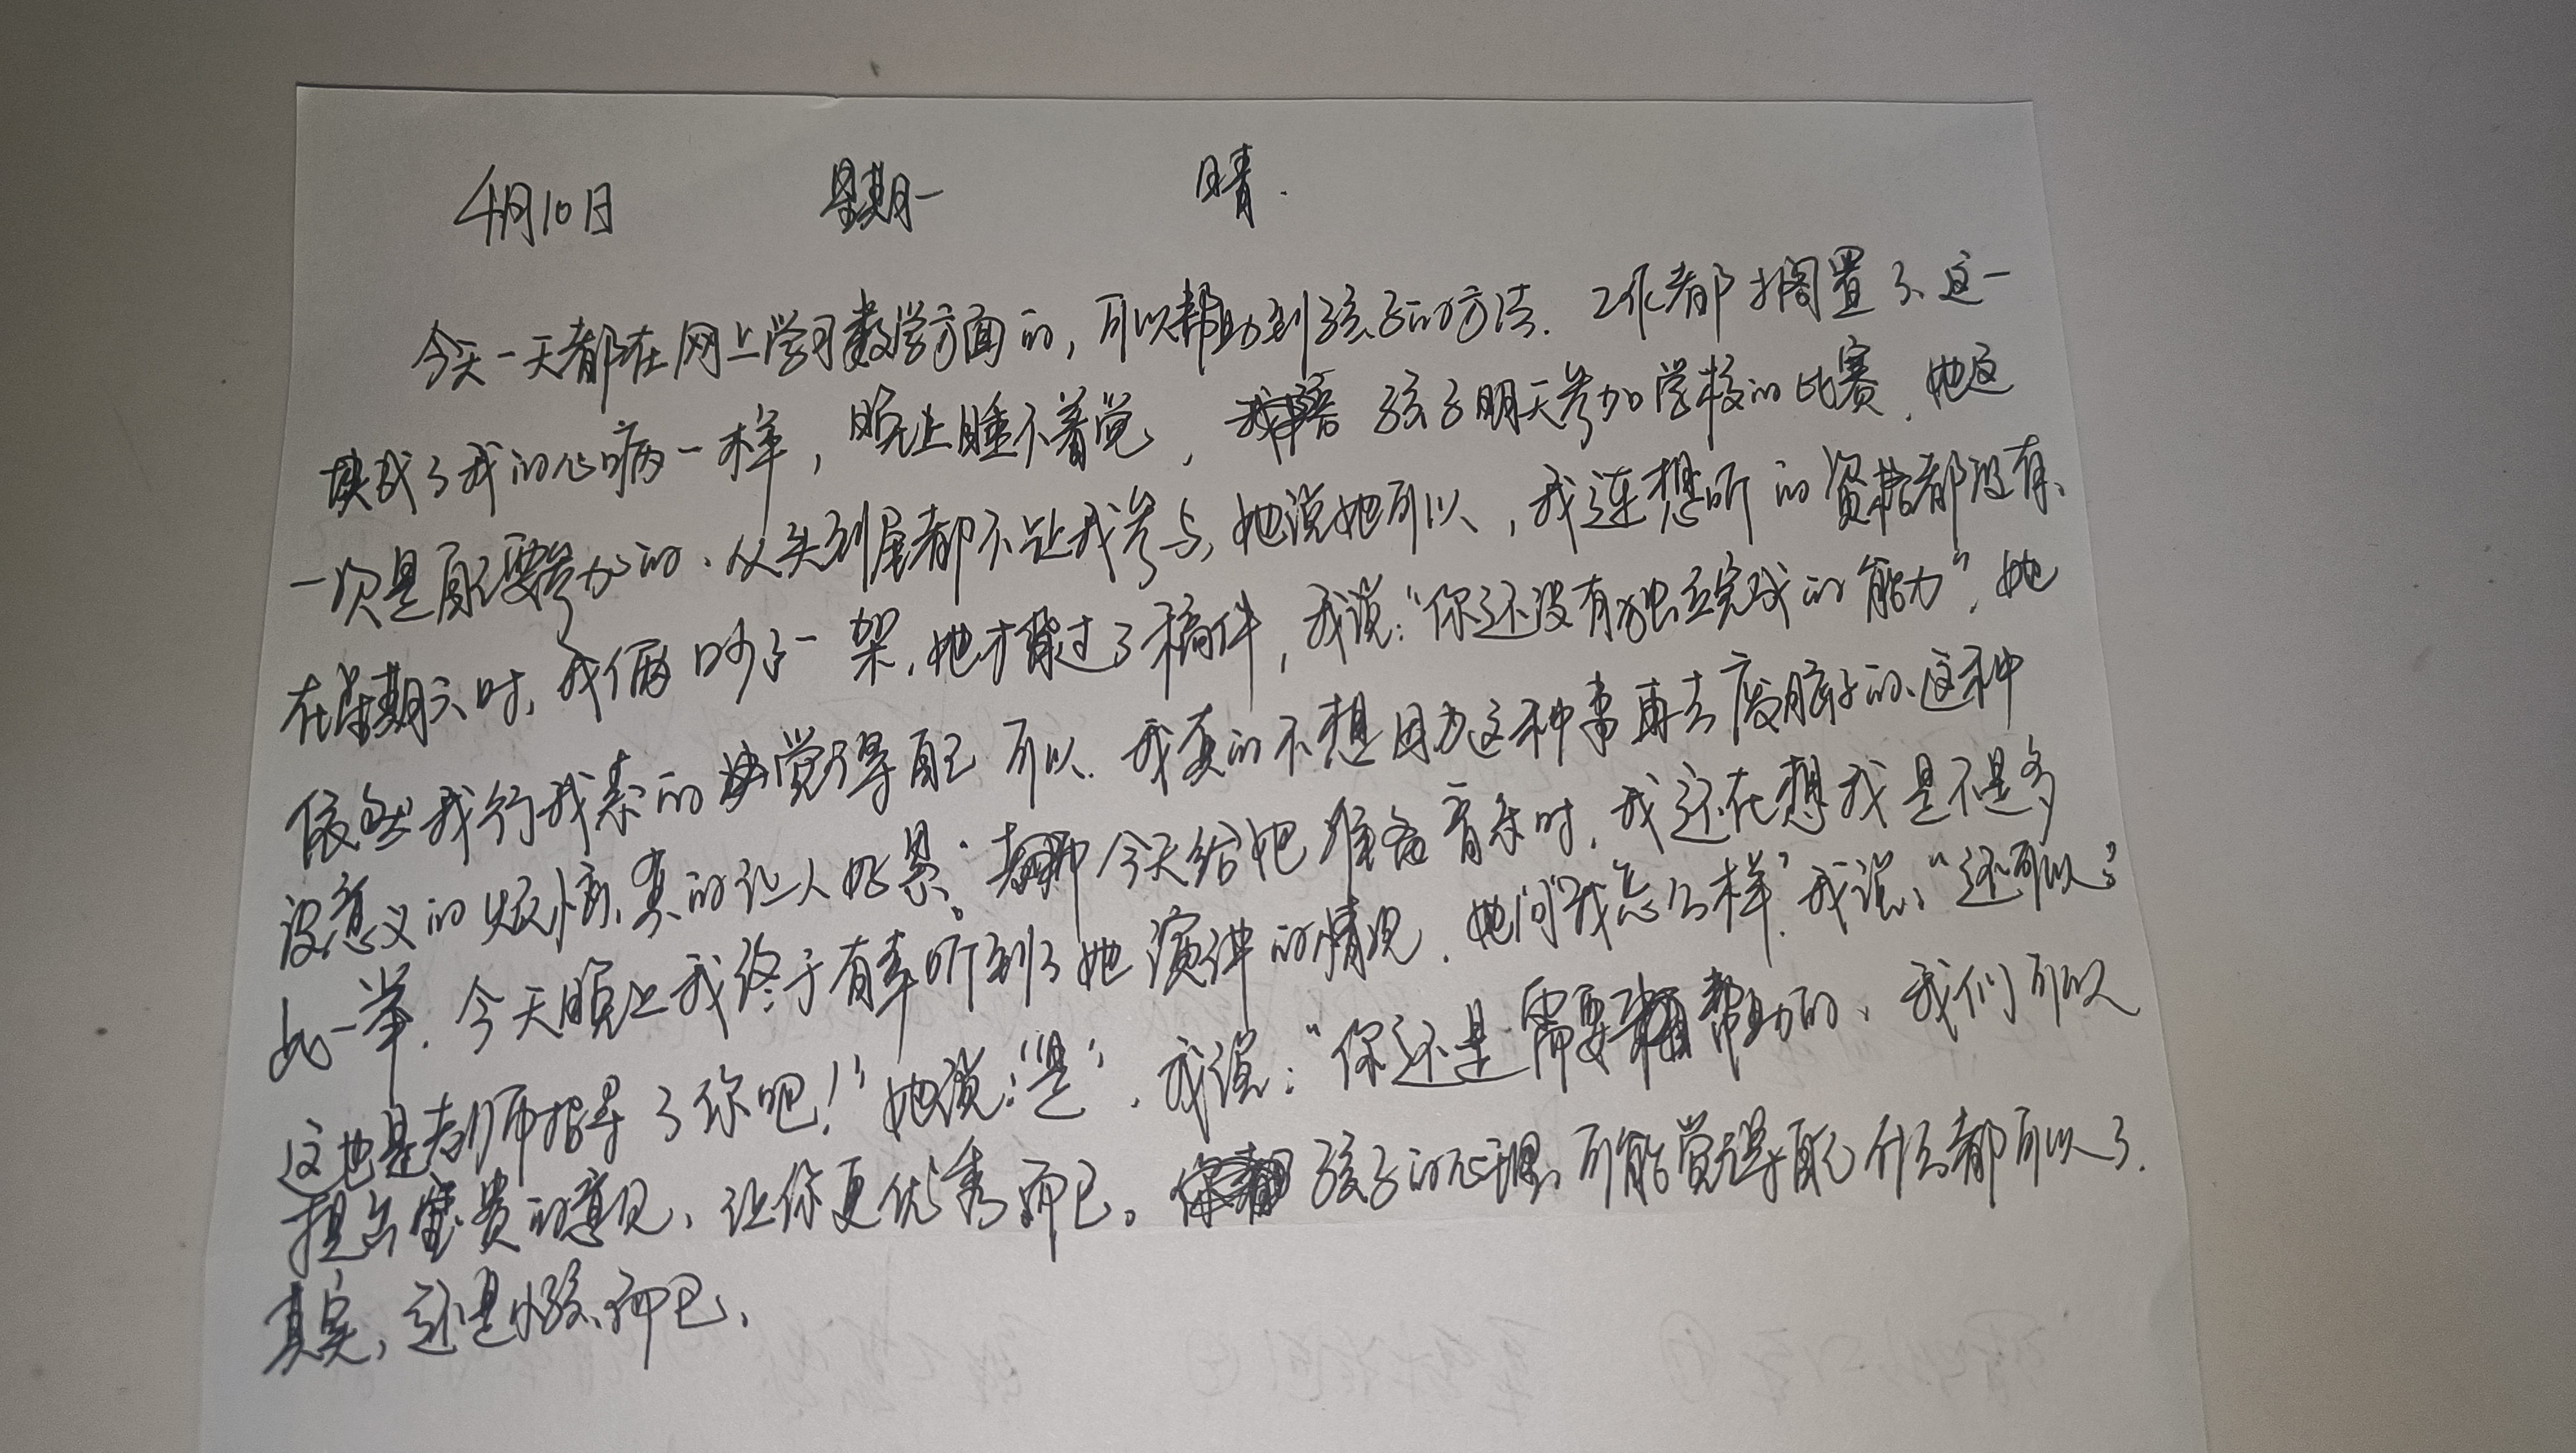 4月10日 星期一 晴.
今天一天都在网上学习数学方面的，可以帮助到孩子的方法．工作都搁置了、这一
块成了我的心病一样，晚上睡不着觉，孩子明天参加学校的比赛．她这
一次是自己要参加的、从头到尾都不让我参与，她说她可以，我连想听的资格都没有、
在星期六时，我俩吵了一架，她才背过了稿件，我说：“你还没有独立完成的能力”，她
依然我行我素的觉得自己可以．我真的不想因为这种事再去废脑子的、这种
没意义的烦恼，真的让人好累。今天给她准备音乐时，我还在想我是不是多
此一举．今天晚上我终于有幸听到了她演讲的情况．她问“我怎么样”我说：“还可以，
这也是老师指导了你吧！”她说：“是”，我说：“你还是需要帮助的、我们可以
提点宝贵的意见、让你更优秀而已。孩子的心理，可能觉得自己什么都可以了．
其实，还是小孩而已、